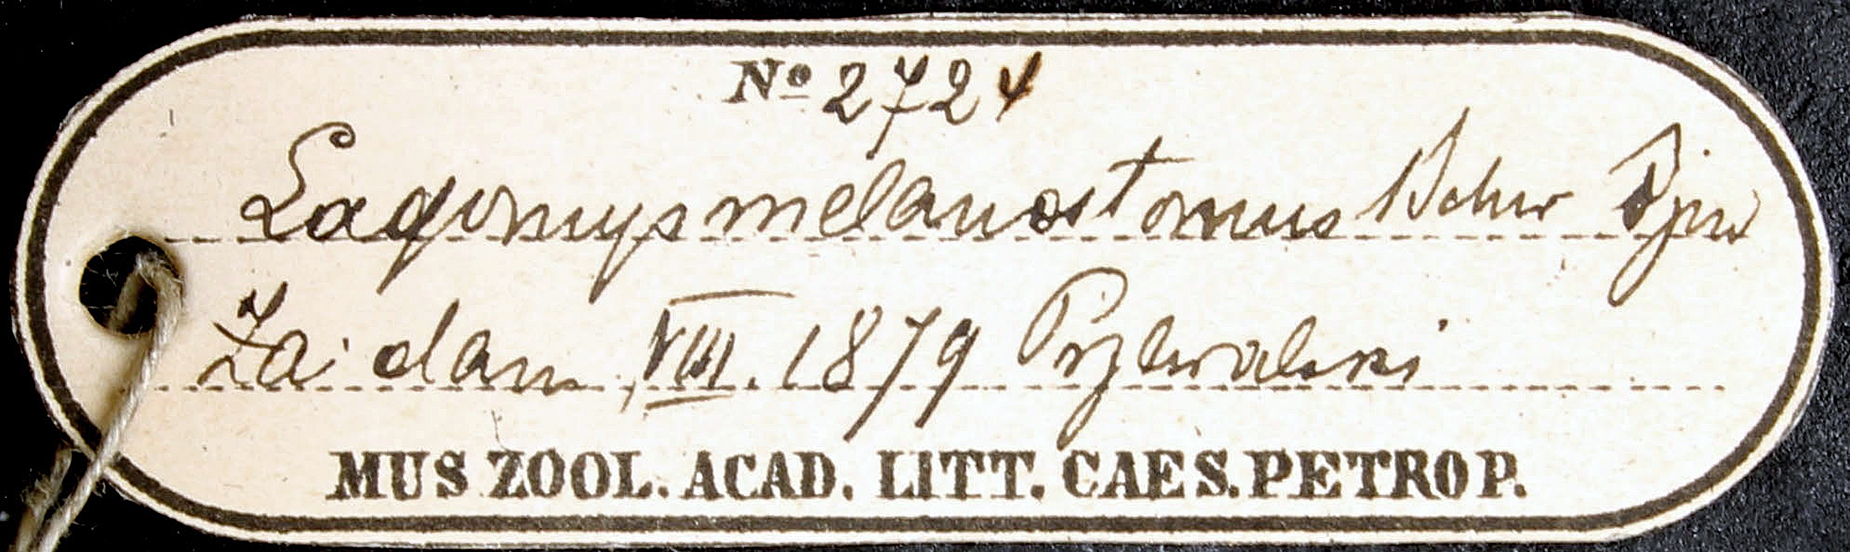 No 2724
Lagomys melanostomus Bchnr
Zaidam VIII. 1879 Przewalski
MUS ZOOL. ACAD. LITT. CAES. PETROP.